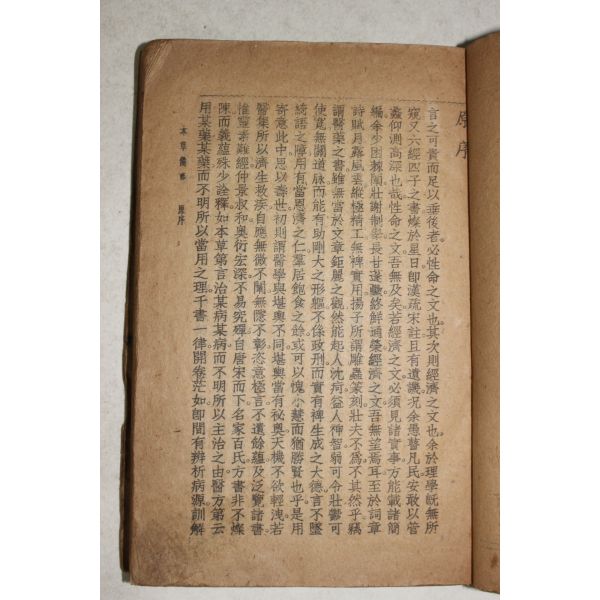 原序
言之可貴而足以垂後者必性命之文也。其次則經濟之文也。余於理學旣無所
窺又六經四子之書燦於星日卽漢疏宋註且有遺譏况余愚瞽凡民安敢以管
蠡仰測高深也哉性命之文吾無及矣若經濟之文必須見諸實事方能載諸簡
編余少困棘闈壯謝制舉長甘蓬虆終鮮通榮經濟之文吾無望焉耳至於詞章
詩賦月露風雲縱極精工無裨實用揚子所謂雕蟲篆刻壯夫不爲不其然乎竊
謂醫藥之書雖無當於文章鉅麗之觀然能起人沈疴益人神智弱可令壯鬱可
使寬無關道脉而能有助剛大之形軀不係政刑而實有裨生成之大德言不墜
綺語之障用有當恩濟之仁羣居飽食之餘或可以愧小慧而猶勝賢也乎是用
寄意此中思以壽世初則謂醫學與堪輿不同堪輿當有秘奥天機不欲輕洩若
醫集所以濟生救疾自應無微不闡無隱不彰恣意極言不遺餘蘊及泛覽諸書
惟靈素難經仲景叔和奥衍宏深不易究殫自唐宋而下名家百氏方書非不燦
陳而義蘊殊少詮釋如本草第言治某病某病而不明所以主治之由醫方第云
用某藥某藥而不明所以當用之理千書一律開卷茫如卽閒有辨析病源訓解
本草備要 原序